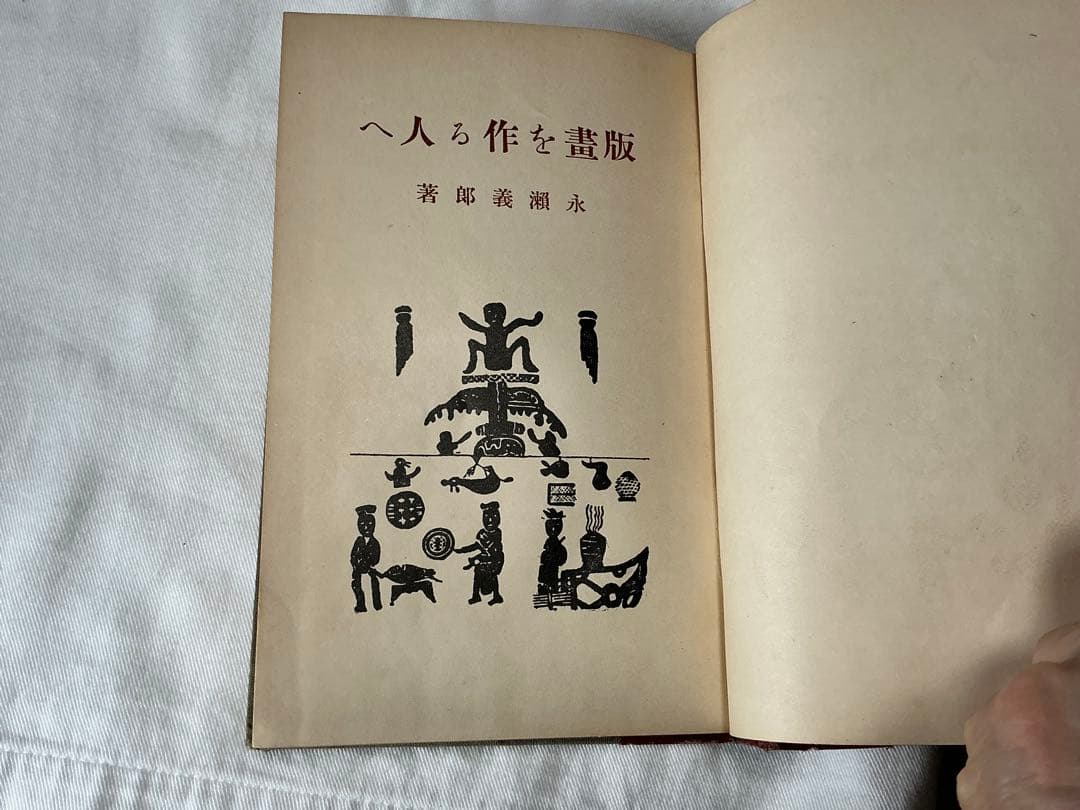 版畫を作る人へ
永瀨義郎著